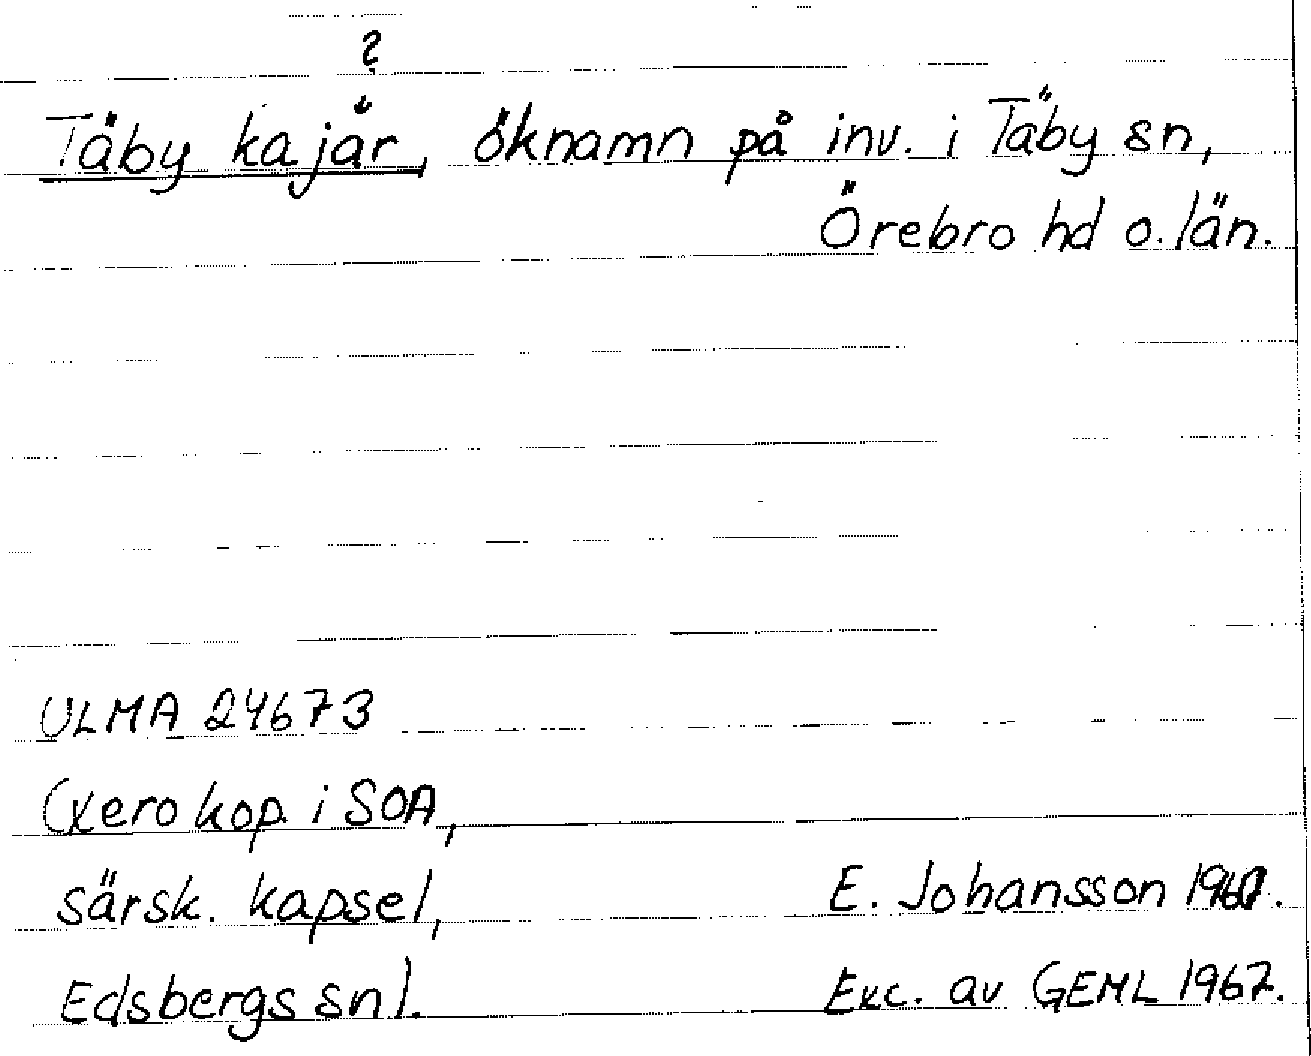 ?
Täby kajår, öknamn på inv. i Täby sn,
Örebro hd o. län.
ULMA 24673
(Xerokop. i SOA,
särsk. kapsel,
E. Johansson 1967.
Edsbergs sn).
Exc. av GEML 1967.